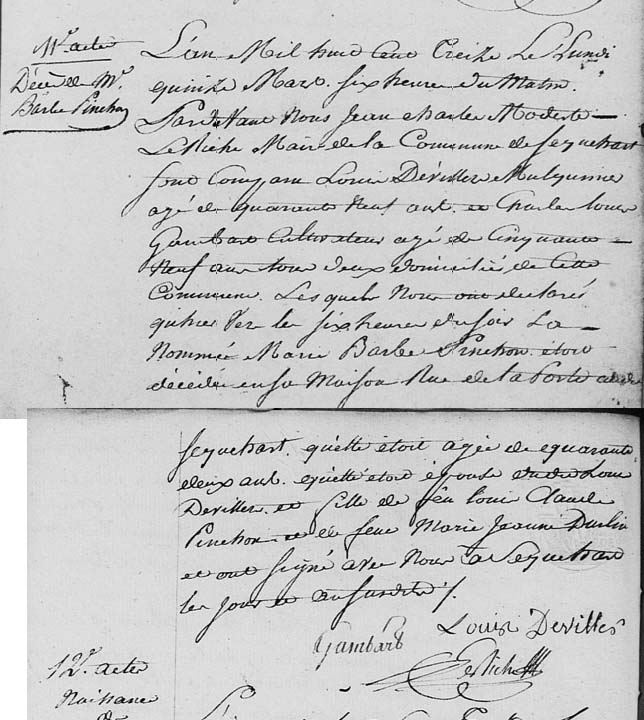 11e acte
Décès de Mr.
Barbe Pinchon
L'an Mil huit Cent Treize Le Lundi
quinze Mars. six heure du Matin.
Pardevant Nous Jean Charle Modeste
Le Riche Maire de la Commune de Sequehart
sont Comparu Louis Déviller Mulquinier
agé de quarante Neuf ans. et Charle Louis
Gambart Cultivateur agé de Cinquante
Neuf ans tous deux domiciliés de Cette
Commune. Lesquels Nous ont declarés
qu'hier Vers les six heures du soir La
Nommée Marie Barbe Pinchon étoit
décédée en sa Maison Rue de la Porte
Sequehart. qu'elle étoit agée de quarante
deux ans. qu'elle étoit épouse Louis
Deviller et fille de feu Louis Claude
Pinchon et de feue Marie Jeanne
et ont signé avec Nous à Sequehart
les jour et an susdits ⁒.
Louis Devilles
Gambart
Le Riche
12e acte
Naissance